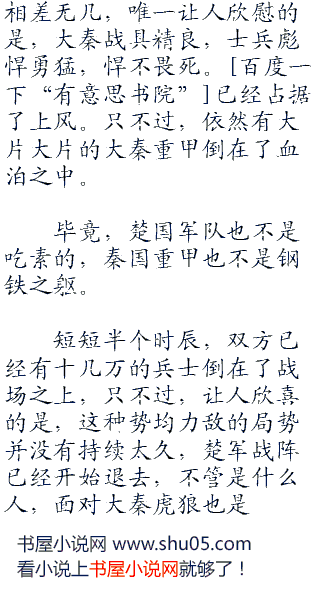 相差无几，唯一让人欣慰的
是，大秦战具精良，士兵彪
悍勇猛，悍不畏死。[百度一
下“有意思书院”]已经占据
了上风。只不过，依然有大
片大片的大秦重甲倒在了血
泊之中。
毕竟，楚国军队也不是
吃素的，秦国重甲也不是钢
铁之躯。
短短半个时辰，双方已
经有十几万的兵士倒在了战
场之上，只不过，让人欣喜
的是，这种势均力敌的局势
并没有持续太久，楚军战阵
已经开始退去，不管是什么
人，面对大秦虎狼也是
书屋小说网 www.shu05.com
看小说上书屋小说网就够了！